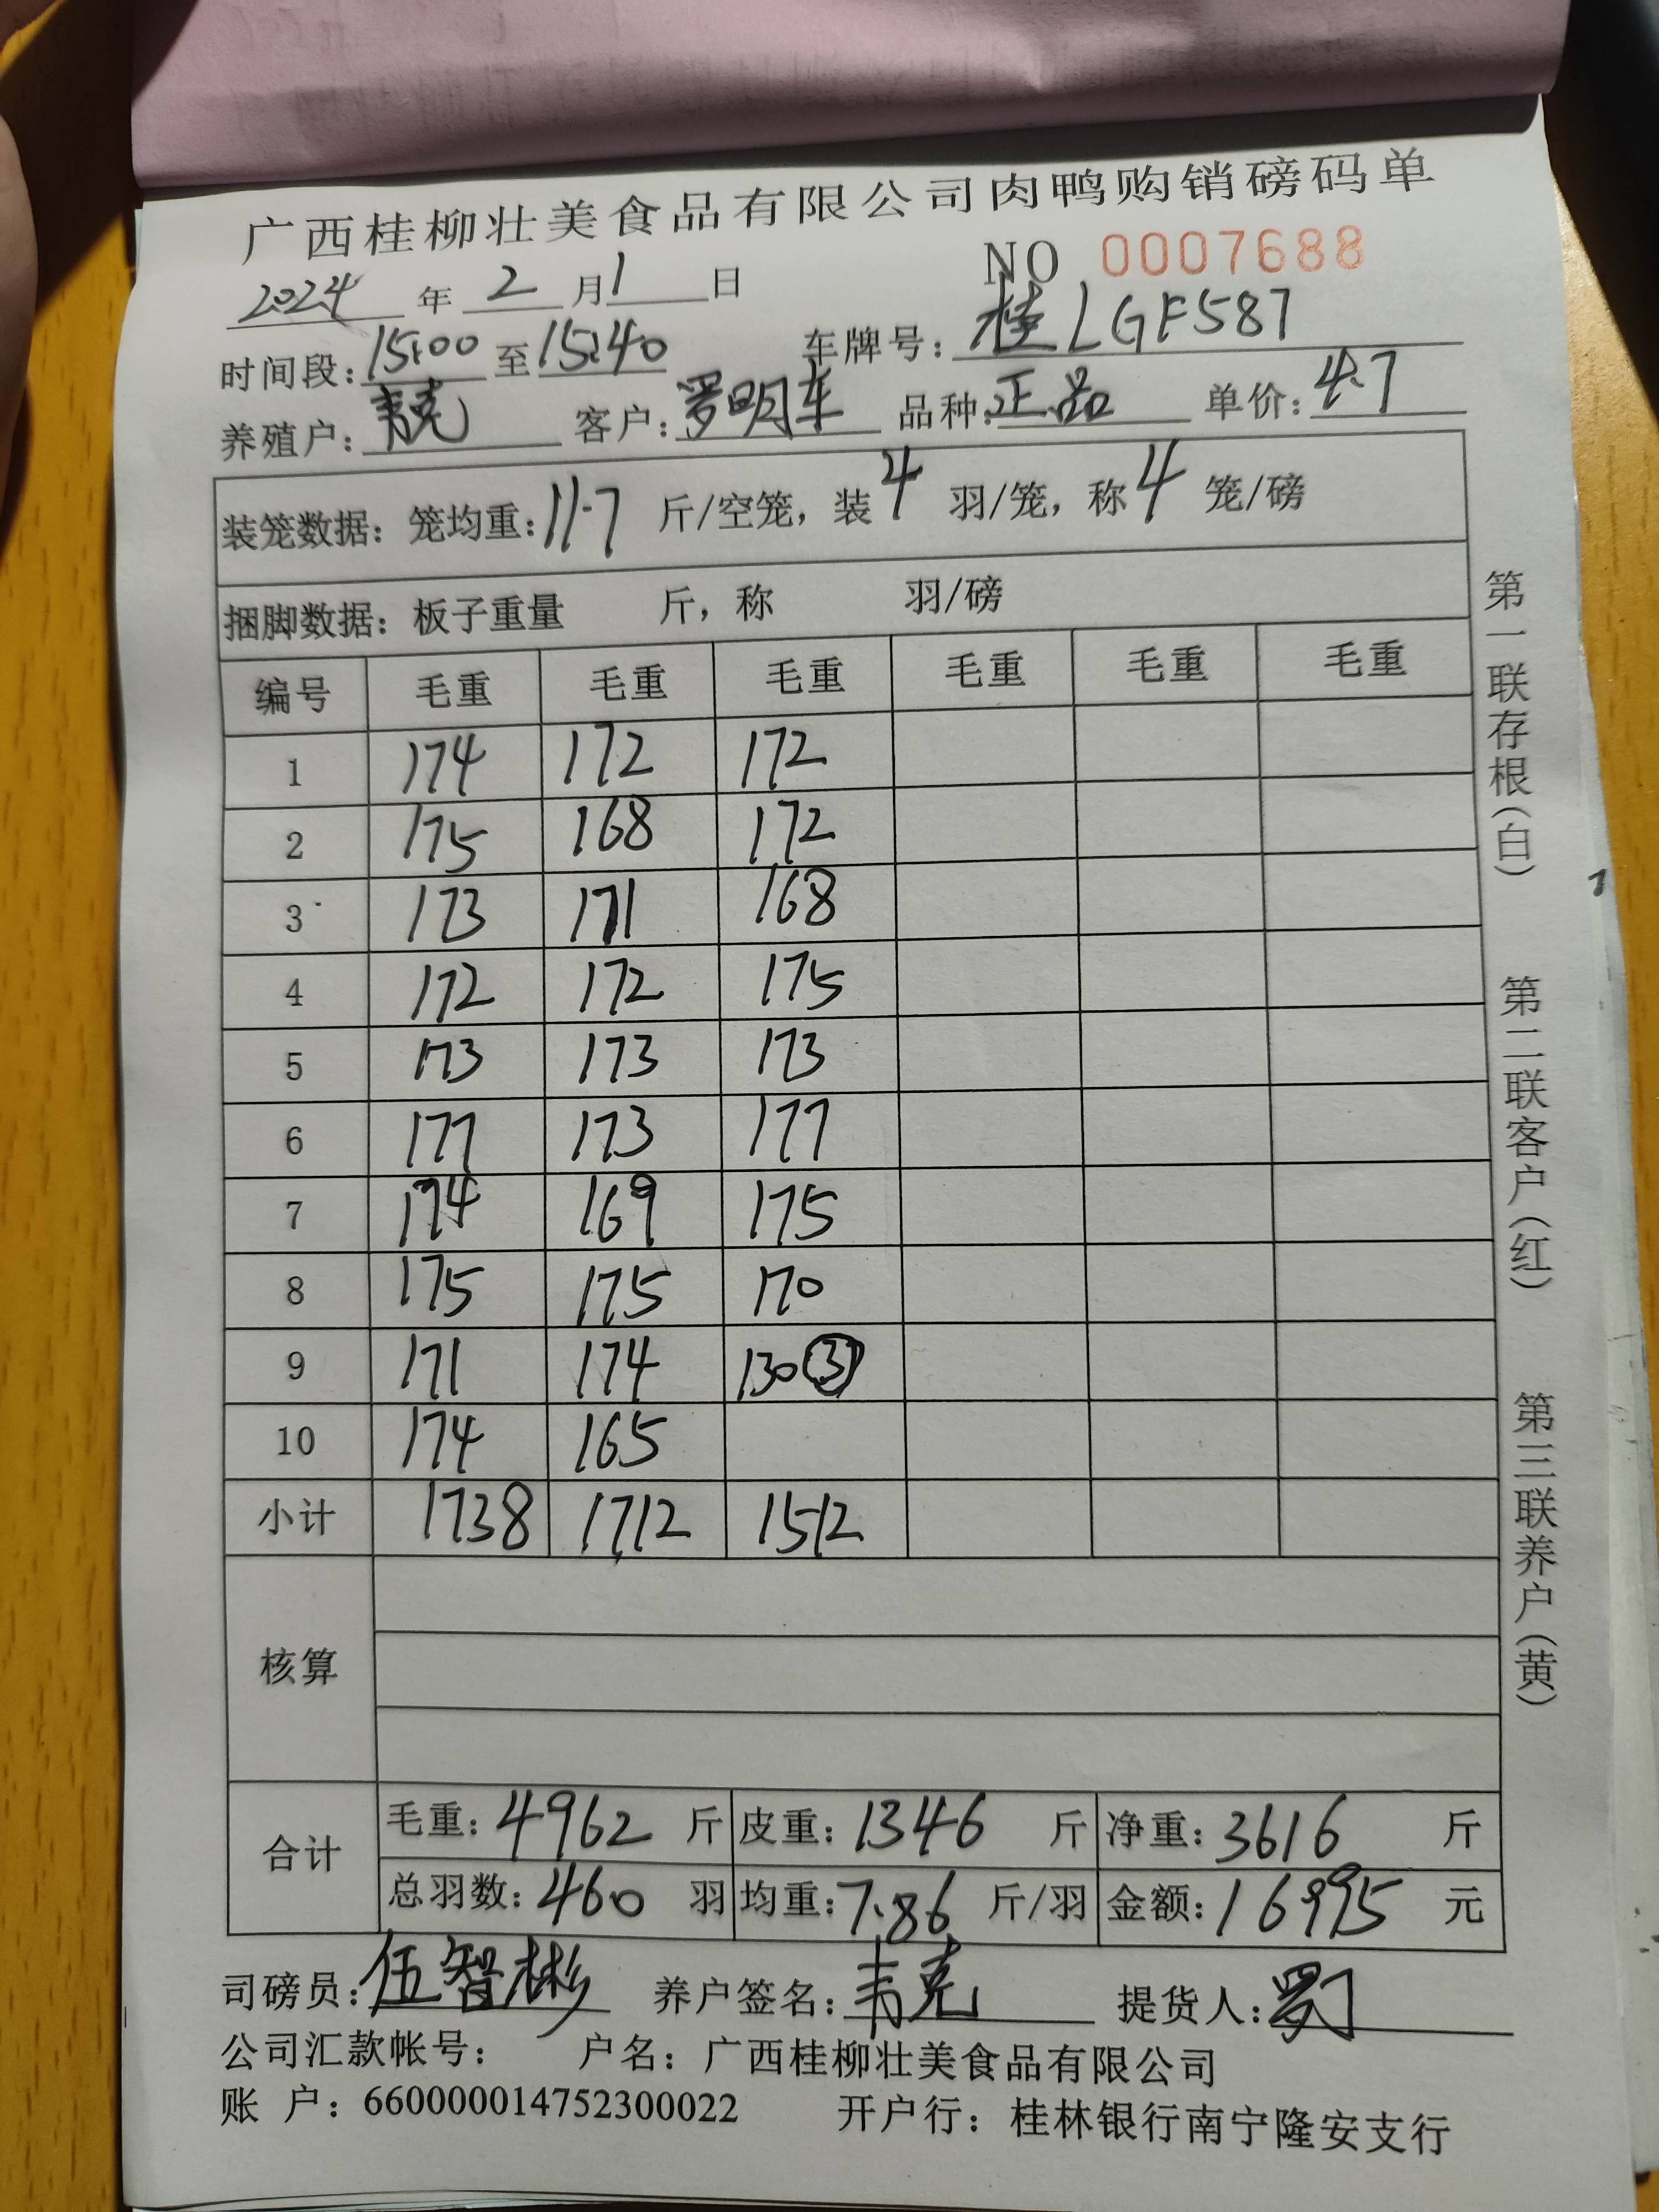 广西桂柳壮美食品有限公司肉鸭购销磅码单
NO 0007688
2024 年 2 月 1 日
时间段: 15:00 至 15:40 车牌号: 桂LGF587
养殖户: 韦克 客户: 罗明车 品种: 正品 单价: 4.7
装笼数据: 笼均重: 11.7 斤/空笼, 装 4 羽/笼, 称 4 笼/磅
捆脚数据: 板子重量 斤, 称 羽/磅
编号 毛重 毛重 毛重 毛重 毛重 毛重
1 174 172 172
2 175 168 172
3 173 171 168
4 172 172 175
5 173 173 173
6 177 173 177
7 174 169 175
8 175 175 170
9 171 174 130③
10 174 165
小计 1738 1712 1512
核算
合计
毛重: 4962 斤 皮重: 1346 斤 净重: 3616 斤
总羽数: 460 羽 均重: 7.86 斤/羽 金额: 16995 元
司磅员: 伍智彬 养户签名: 韦克 提货人:
公司汇款帐号: 户名: 广西桂柳壮美食品有限公司
账 户: 660000014752300022 开户行: 桂林银行南宁隆安支行
第一联存根(白)
第二联客户(红)
第三联养户(黄)